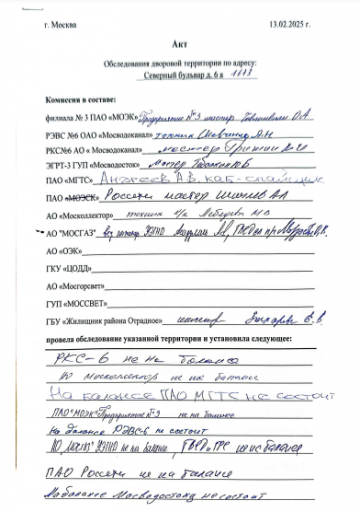 г. Москва 13.02.2025 г.
Акт
Обследования дворовой территории по адресу:
Северный бульвар д. 6 а
Комиссия в составе:
филиала № 3 ПАО «МОЭК» Предприятие №3 мастер О.А
РЭВС №6 ОАО «Мосводоканал» техник А.Н
РКС№6 АО « Мосводоканал» мастер
ЭГРТ-3 ГУП «Мосводосток» мастер
ПАО «МГТС» Андреев А.В. каб-спайщик
ПАО «МОЭСК» Россети мастер А.А
АО «Москоллектор» техник
АО "МОСГАЗ"
АО «ОЭК»
ГКУ «ЦОДД»
АО «Мосгорсвет»
ГУП «МОССВЕТ»
ГБУ «Жилищник района Отрадное» инженер
провели обследование указанной территории и установила следующее:
РКС-6 не на балансе
АО москоллектор не на балансе
На балансе ПАО МГТС не состоит
ПАО "МОЭК" Предприятие №3 не на балансе
На балансе РЭВС-6 не состоит
не на балансе, не на балансе
ПАО Россети не на балансе
На балансе Мосводостока не состоит